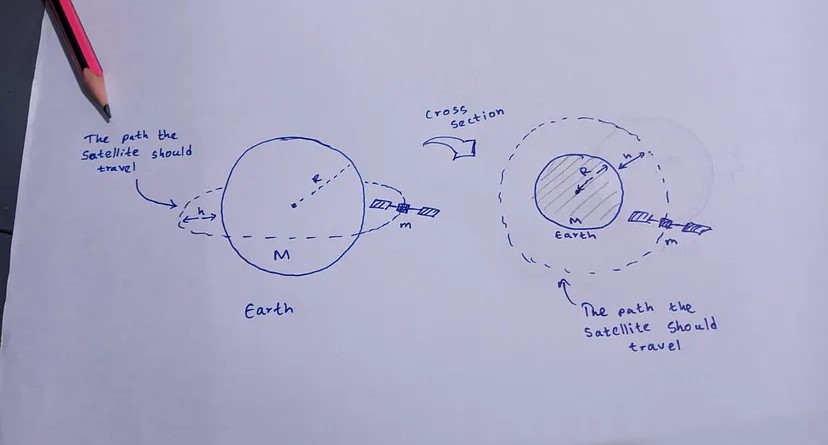 The path the
Satellite should
travel
h
R
M
m
Earth
cross
section
h
R
M
Earth
m
The path the
Satellite should
travel